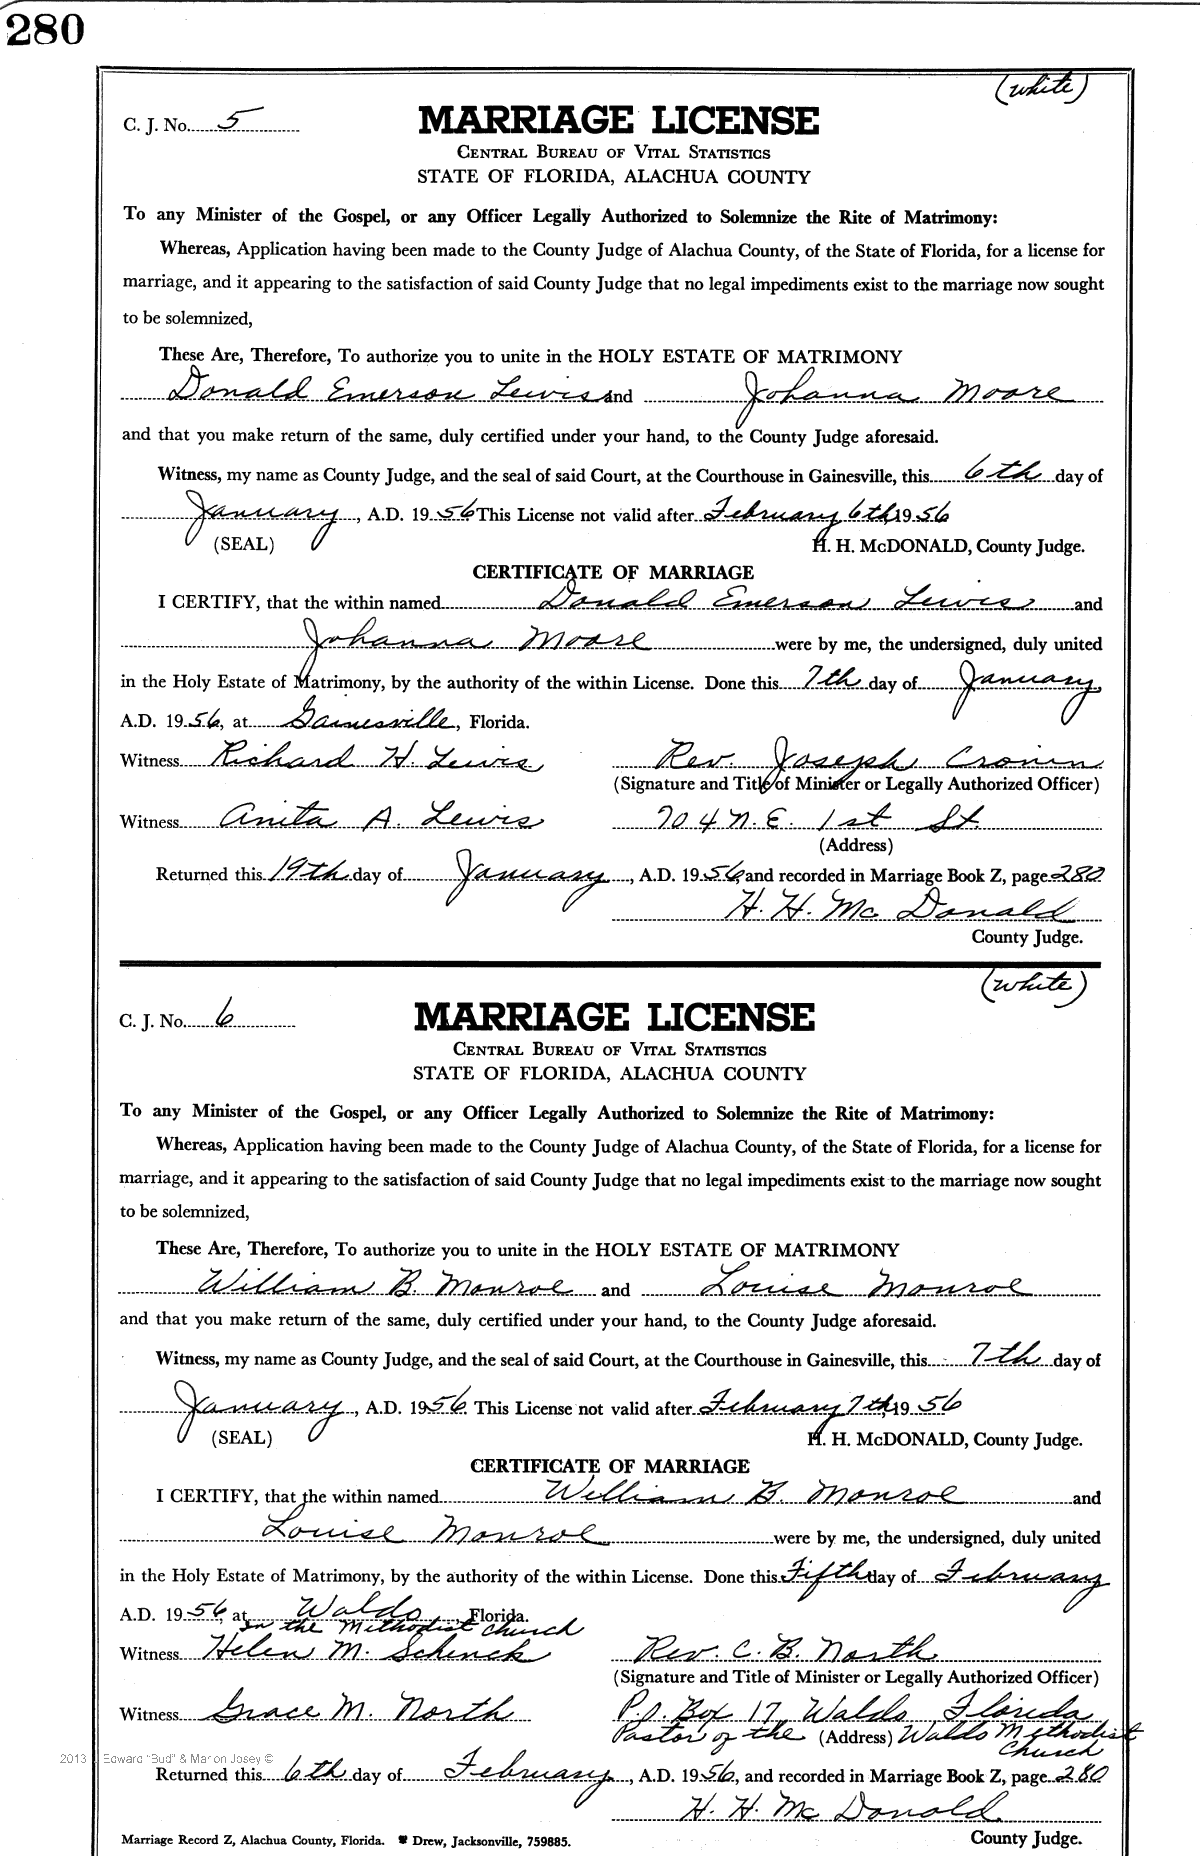 280
(white)
C. J. No. 5
MARRIAGE LICENSE
CENTRAL BUREAU OF VITAL STATISTICS
STATE OF FLORIDA, ALACHUA COUNTY
To any Minister of the Gospel, or any Officer Legally Authorized to Solemnize the Rite of Matrimony:
Whereas, Application having been made to the County Judge of Alachua County, of the State of Florida, for a license for
marriage, and it appearing to the satisfaction of said County Judge that no legal impediments exist to the marriage now sought
to be solemnized,
These Are, Therefore, To authorize you to unite in the HOLY ESTATE OF MATRIMONY
Donald Emerson Lewis and Johanna Moore
and that you make return of the same, duly certified under your hand, to the County Judge aforesaid.
Witness, my name as County Judge, and the seal of said Court, at the Courthouse in Gainesville, this 6th day of
January, A.D. 1956 This License not valid after February 6th, 1956
(SEAL) H. H. McDONALD, County Judge.
CERTIFICATE OF MARRIAGE
I CERTIFY, that the within named Donald Emerson Lewis and
Johanna Moore were by me, the undersigned, duly united
in the Holy Estate of Matrimony, by the authority of the within License. Done this 7th day of January,
A.D. 1956, at Gainesville, Florida.
Witness Richard H. Lewis Rev. Joseph Cronin
(Signature and Title of Minister or Legally Authorized Officer)
Witness Anita A. Lewis 704 N.E. 1st St.
(Address)
Returned this 19th day of January, A.D. 1956, and recorded in Marriage Book Z, page 280
H. H. Mc Donald
County Judge.
(white)
C. J. No. 6
MARRIAGE LICENSE
CENTRAL BUREAU OF VITAL STATISTICS
STATE OF FLORIDA, ALACHUA COUNTY
To any Minister of the Gospel, or any Officer Legally Authorized to Solemnize the Rite of Matrimony:
Whereas, Application having been made to the County Judge of Alachua County, of the State of Florida, for a license for
marriage, and it appearing to the satisfaction of said County Judge that no legal impediments exist to the marriage now sought
to be solemnized,
These Are, Therefore, To authorize you to unite in the HOLY ESTATE OF MATRIMONY
William B. Monroe and Louise Monroe
and that you make return of the same, duly certified under your hand, to the County Judge aforesaid.
Witness, my name as County Judge, and the seal of said Court, at the Courthouse in Gainesville, this 7th day of
January, A.D. 1956. This License not valid after February 7th, 1956
(SEAL) H. H. McDONALD, County Judge.
CERTIFICATE OF MARRIAGE
I CERTIFY, that the within named William B. Monroe and
Louise Monroe were by me, the undersigned, duly united
in the Holy Estate of Matrimony, by the authority of the within License. Done this Fifth day of February
A.D. 1956, at Waldo, Florida.
in the Methodist Church
Witness Helen M. Schenck Rev. C. B. North
(Signature and Title of Minister or Legally Authorized Officer)
Witness Grace M. North P.O. Box 17 Waldo, Florida
Pastor of the (Address) Waldo Methodist
Church
2013 Edward "Bud" & Marion Josey ©
Returned this 6th day of February, A.D. 1956, and recorded in Marriage Book Z, page 280
H. H. Mc Donald
Marriage Record Z, Alachua County, Florida. Drew, Jacksonville, 759885. County Judge.